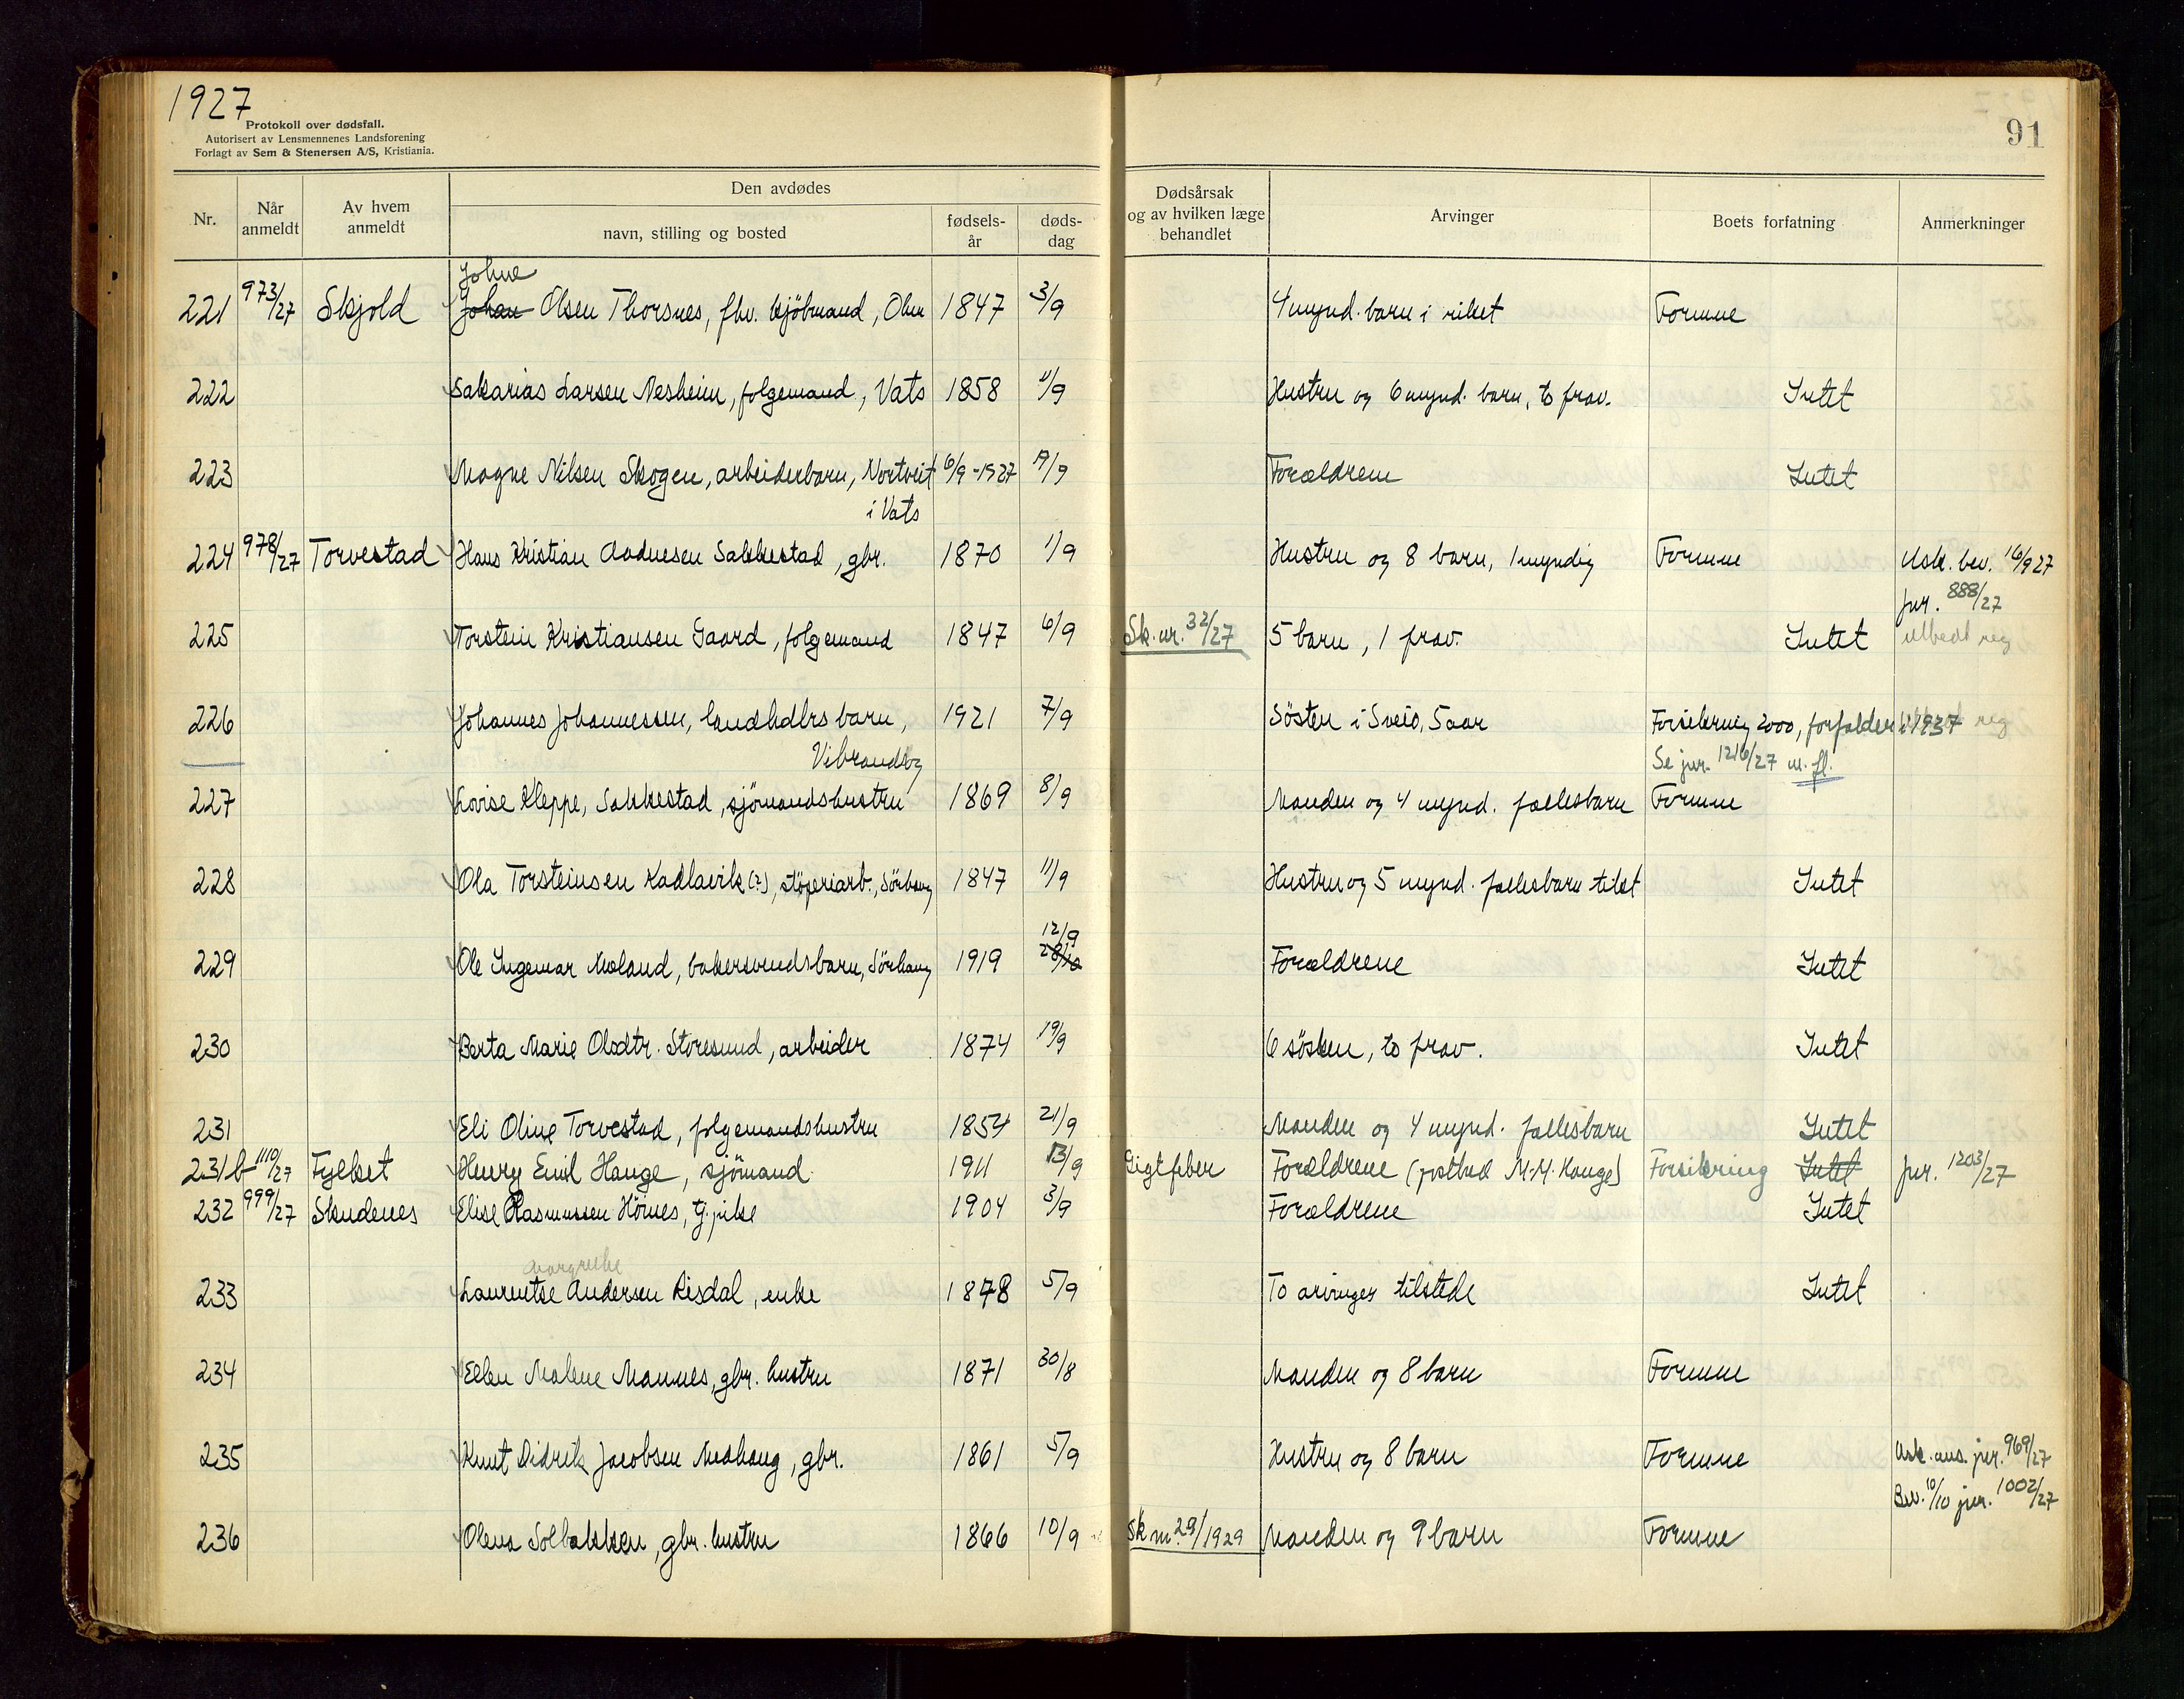 1927
Protokoll over dødsfall.
Autorisert av Lensmennenes Landsforening
Forlagt av Sem & Stenersen A/S, Kristiania.
91
Nr. Når anmeldt Av hvem anmeldt Den avdødes navn, stilling og bosted fødsels-år døds-dag Dødsårsak og av hvilken læge behandlet Arvinger Boets forfatning Anmerkninger
Johne
221 973/27 Skjold Johan Olsen Thorsnes, fhv. kjöbmand, Ølen 1847 3/9 4 mynd. barn i riket Formue
222 Sakarias Larsen Nesheim, folgemand, Vats 1858 11/9 Hustru og 6 mynd. barn, to frav. Intet
223 Magne Nilsen Skogen, arbeiderbarn, Nortveit 6/9-1927 19/9 Forældrene Intet
i Vats
224 978/27 Torvestad Hans Kristian Aadnesen Sakkestad, gbr. 1870 1/9 Hustru og 8 barn, 1 myndig Formue Usk. bev. 16/9 27
jnr. 888/27
225 Torstein Kristiansen Gaard, folgemand 1847 6/9 Sk. nr. 32/27 5 barn, 1 frav. Intet reg
226 Johannes Johannessen, landhdlrs barn, 1921 7/9 Söster i Sveio, 5 aar Forsikring 2000, forfalder i 1937 reg
Vibrandsøy Se jnr. 1216/27 m. fl.
227 Lovise Kleppe, Sakkestad, sjömandshustru 1869 8/9 Manden og 4 mynd. fællesbarn Formue
228 Ola Torsteinsen Kadlavik (?), støperiarb., Sörhaug 1847 11/9 Hustru og 5 mynd. fællesbarn tilst Intet
12/9
229 Ole Ingemar Moland, bakersvendsbarn, Sörhaug 1919 28/10 Forældrene Intet
230 Berta Marie Olsdtr. Storesund, arbeider 1874 19/9 6 søsken, to frav. Intet
231 Eli Oline Torvestad, folgemandshustru 1854 21/9 Manden og 4 mynd. fællesbarn Intet
231 b 1110/27 Fylket Henry Emil Hauge, sjömand 1911 13/9 Gigtfeber Forældrene (postbud M. M. Hauge) Forsikring Intet jnr. 1203/27
232 999/27 Skudenes Elise Rasmussen Höines, tj.pike 1904 3/9 Forældrene Intet
Margrethe
233 Laurentse Andersen Risdal, enke 1878 5/9 To arvinger tilstede Intet
234 Ellen Malene Mannes, gbr. hustru 1871 30/8 Manden og 8 barn Formue
235 Knut Didrik Jacobsen Medhaug, gbr. 1861 5/9 Hustru og 8 barn Formue Usk. ans. jnr. 969/27
Bev. 10/10 jnr. 1002/27
236 Olena Solbakken, gbr. hustru 1866 10/9 Sk nr. 29/1929 Manden og 9 barn Formue